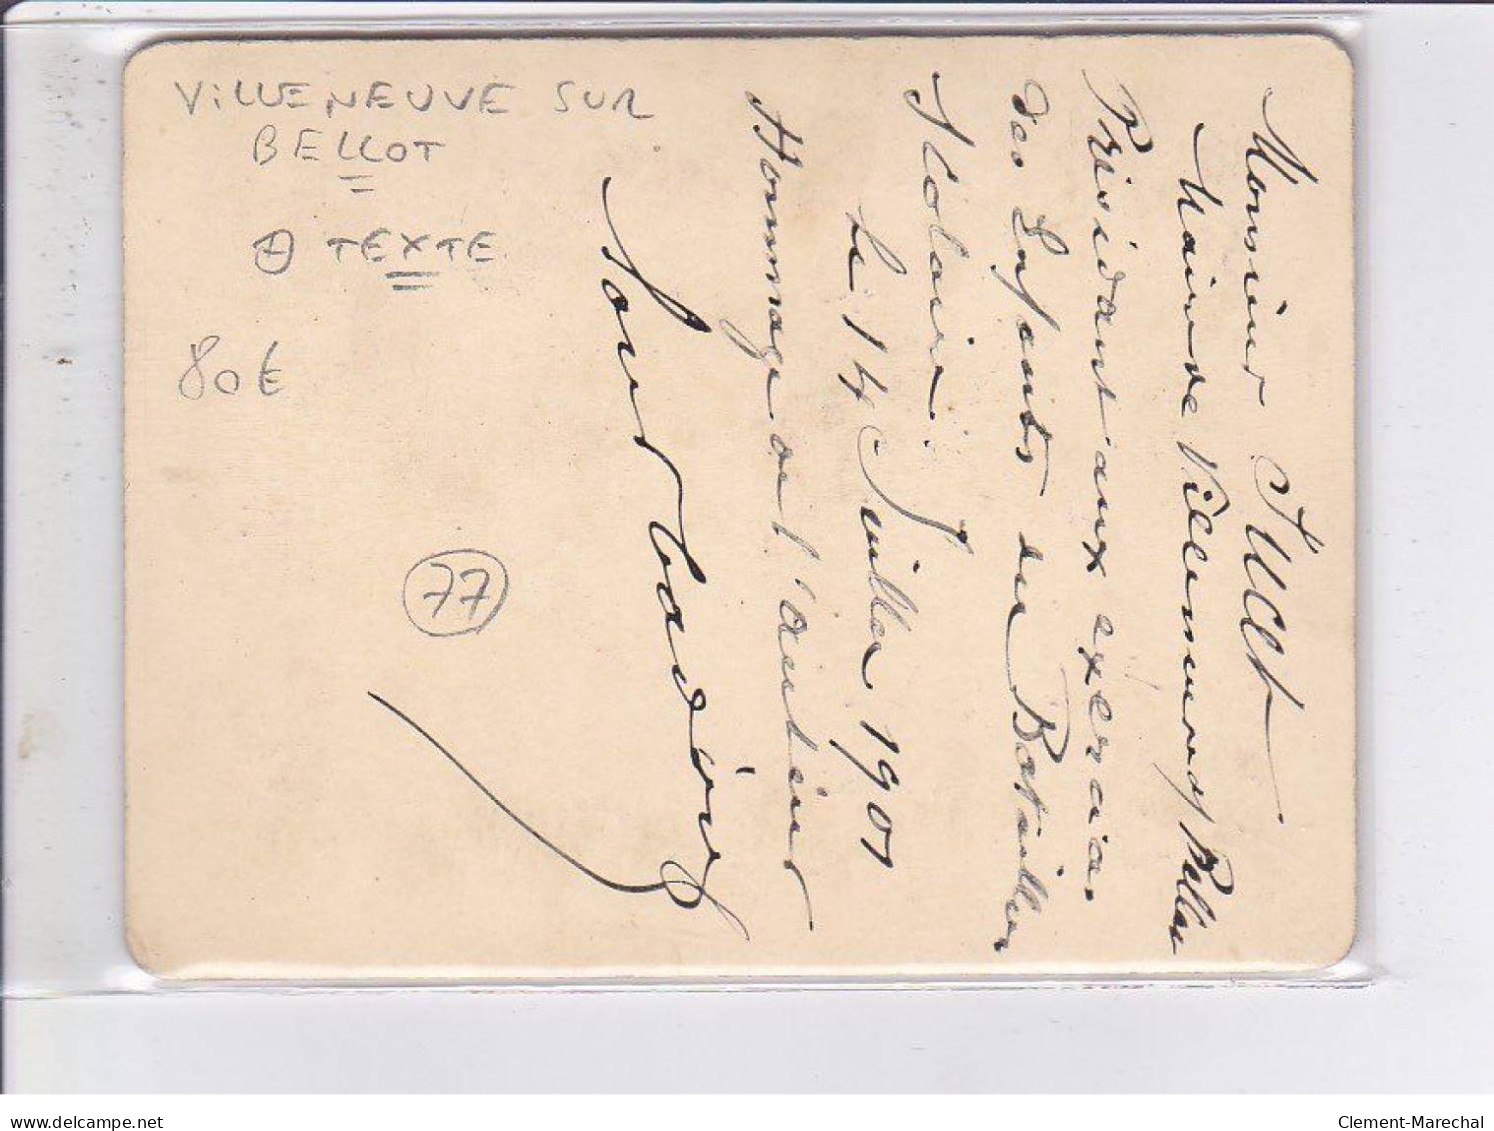 VILLENEUVE SUR
BELLOT
+ TEXTE
80€
77
Monsieur
Maire de Villeneuve s/ Bellot
Présidant aux exercices
des Enfants du Bataillon
Scolaire.
Le 14 Juillet 1901
Hommage de l'auteur
delcampe.net
Clement-Marechal